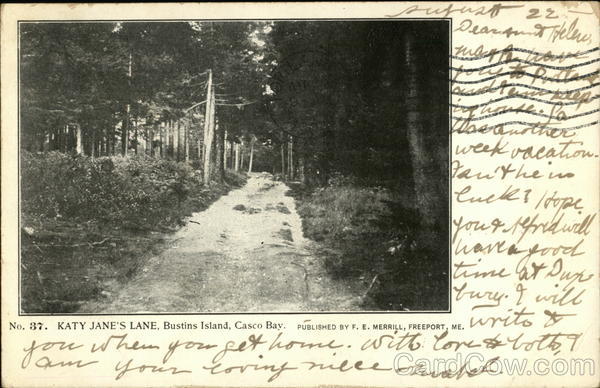 August 22 -
Dear aunt Helen,
week vacation.
Isn't he in
luck? Hope
you & Alfred will
have a good
time at Dux
bury. I will
write to
No. 37. KATY JANE'S LANE, Bustins Island, Casco Bay. PUBLISHED BY F. E. MERRILL, FREEPORT, ME.
you when you get home. With love to both, I
am your loving niece
CardCow.com